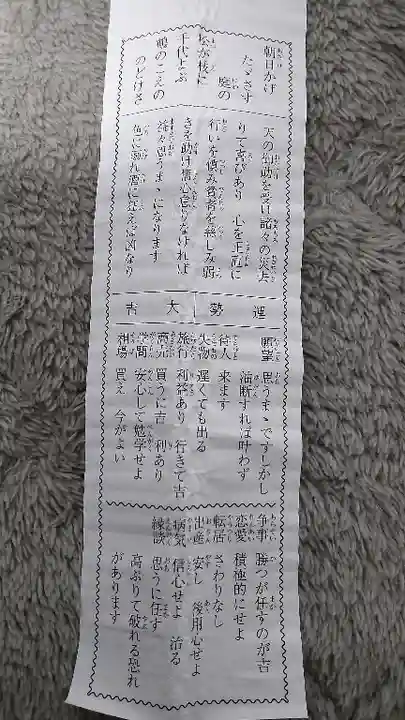 朝日かげ
たゞさす
庭の
松が枝に
千代よぶ
鶴のこえの
のどけさ
天の御助を受け諸々の災去
りて喜びあり 心を正直に
行いを慎み貧者を慈しみ弱
きを助け信心怠りなければ
益々思うまゝになります
色に溺れ酒に狂えば凶なり
運勢 大吉
願望 思うまゝですしかし
油断すれば叶わず
待人 来ます
失物 遅くても出る
旅行 利益あり 行きて吉
商売 買うに吉 利あり
学問 安心して勉学せよ
相場 買え 今がよい
争事 勝つが任すのが吉
恋愛 積極的にせよ
転居 さわりなし
出産 安し 後用心せよ
病気 信心せよ 治る
縁談 思うに任す
高ぶりて破れる恐れ
があります